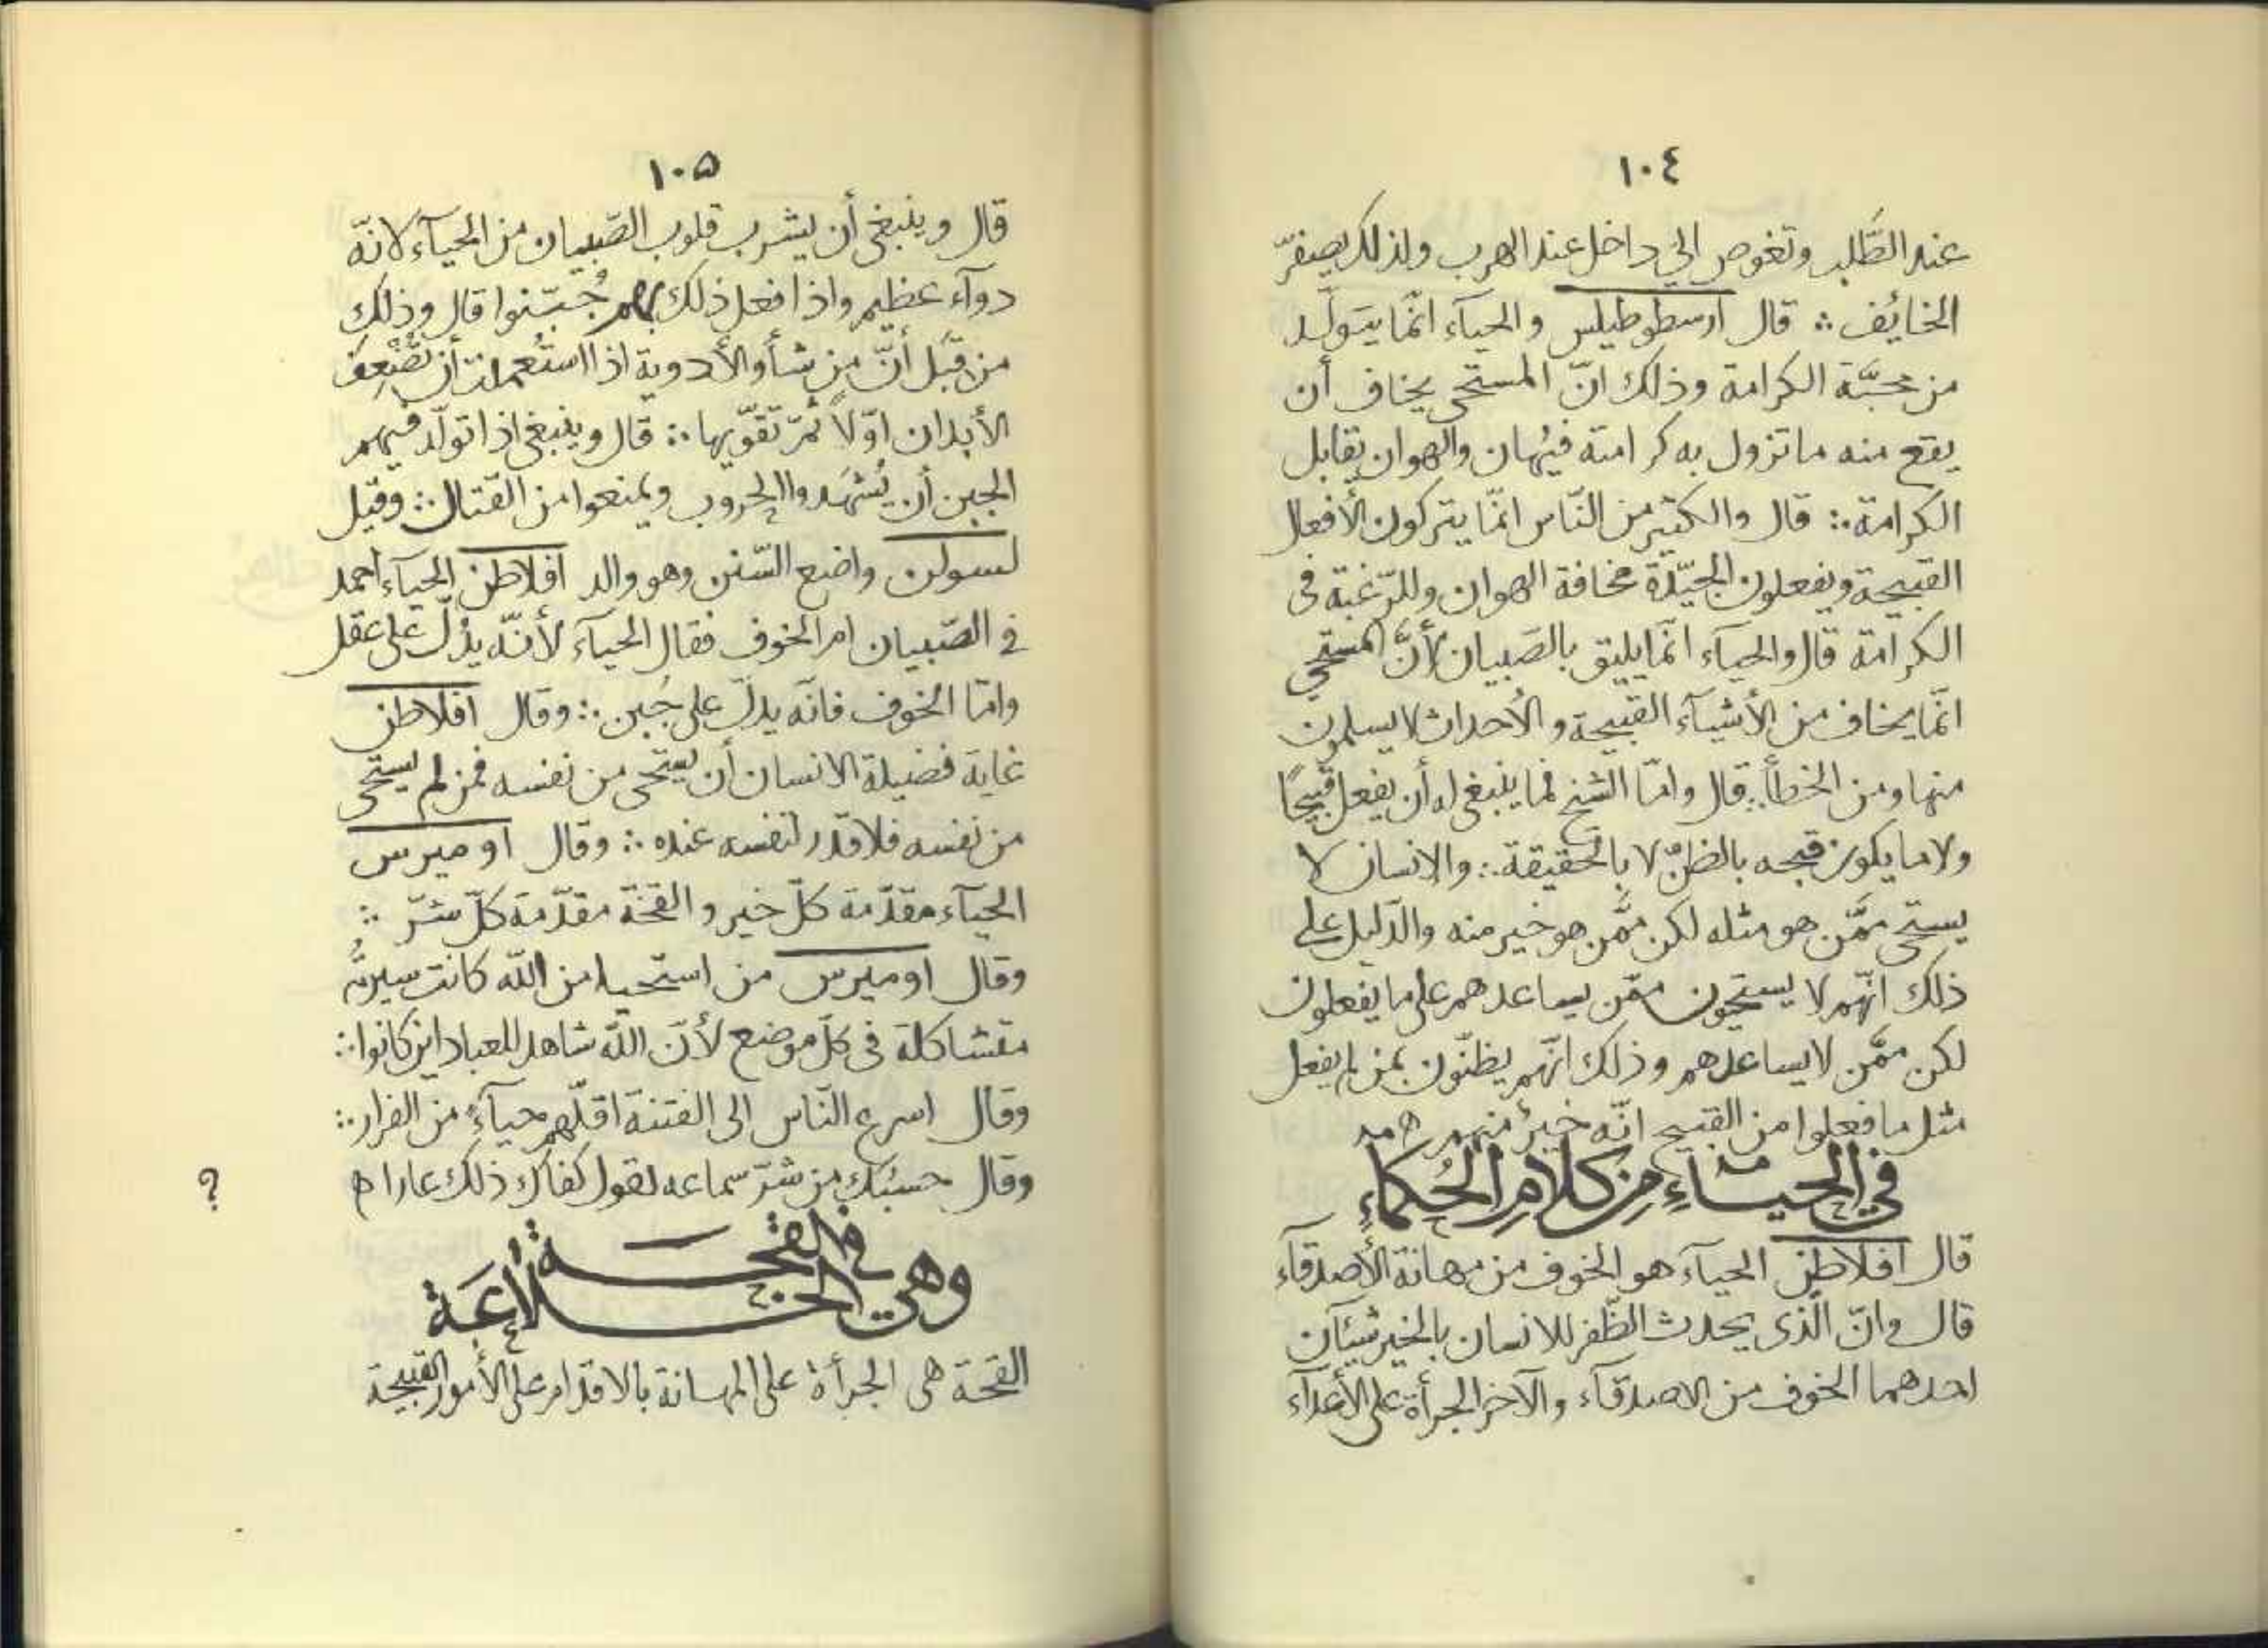 ١٠٤
عند الطَّلب وتغوص الى داخل عند الهرب ولذلك يصفرّ
الخائف ∴ قال ارسطوطيلس والحياء انّما يتولّد
من محبّة الكرامة وذلك انّ المستحى يخاف أن
يقع منه ما تزول به كرامته فيُهان والهوان يقابل
الكرامة ∴ قال والكثير من النّاس انّما يتركون الأفعال
القبيحة ويفعلون الجيّدة مخافة الهوان وللرّغبة فى
الكرامة قال والحياء انّما يليق بالصّبيان لأنّ المستحي
انّما يخاف من الأشيآء القبيحة والأحداث لا يسلمون
منها ومن الخطأ ∴ قال وامّا الشّيخ فما ينبغى له أن يفعل قبيحًا
ولا ما يكون قبحه بالظنّ لا بالحقيقة ∴ والانسان لا
يستحى ممّن هو مثله لكن ممّن هو خير منه والدّليل على
ذلك انّهم لا يستحيون ممّن يساعدهم على ما يفعلون
لكن ممّن لا يساعدهم وذلك انّهم يظنّون بمن لم يفعل
مثل ما فعلوا من القبيح انّه خيرٌ منهم ه
في الحياءِ مِن كلامِ الحُكماءِ
قال افلاطن الحياء هو الخوف من مهانة الأصدقآء
قال وانّ الّذى يحدث الظّفر للانسان بالخير شيئآن
احدهما الخوف من الاصدقآء والآخر الجرأة على الأعدآء
١٠٥
قال وينبغى أن يشرب قلوب الصّبيان من الحيآء لانّه
دوآء عظيم واذا فعل ذلك بهم جُبّنوا قال وذلك
من قِبَل أنّ من شأو الأدوية اذا استُعملت أن تُضْعِف
الأبدان اوّلاً ثمّ تقوّيها ∴ قال وينبغى اذا تولّد فيهم
الجبن أن يُشهَدوا الحروب ويمنعوا من القتال ∴ وقيل
لسولن واضع السّنن وهو والد افلاطن الحيآء احمد
فى الصّبيان ام الخوف فقال الحيآء لأنّه يدُلّ على عقل
وامّا الخوف فانّه يدلّ على جُبن ∴ وقال افلاطن
غاية فضيلة الانسان أن يستحى من نفسه فمن لم يستحى
من نفسه فلا قدر لنفسه عنده ∴ وقال اوميرس
الحيآء مقدّمة كلّ خير والقحة مقدّمة كلّ شرّ ∴
وقال اوميرس من استحيا من اللّه كانت سيرتُه
متشاكلة فى كلّ موضع لأنّ اللّه شاهد للعباد اين كانوا ∴
وقال اسرع النّاس الى الفتنة اقلّهم حيآءً من الفرار ∴
وقال حسبُك من شرّ سماعه لقول كفاك ذلك عارا ه
؟
في القحـــة
وهي الخـــلاعَة
القحة هى الجرأة على المهانة بالاقدام على الأمور القبيحة